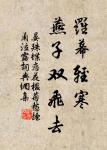 罗幕轻寒
燕子双飞去
晏殊蝶恋花槛菊愁烟
兰泣露词典佩集